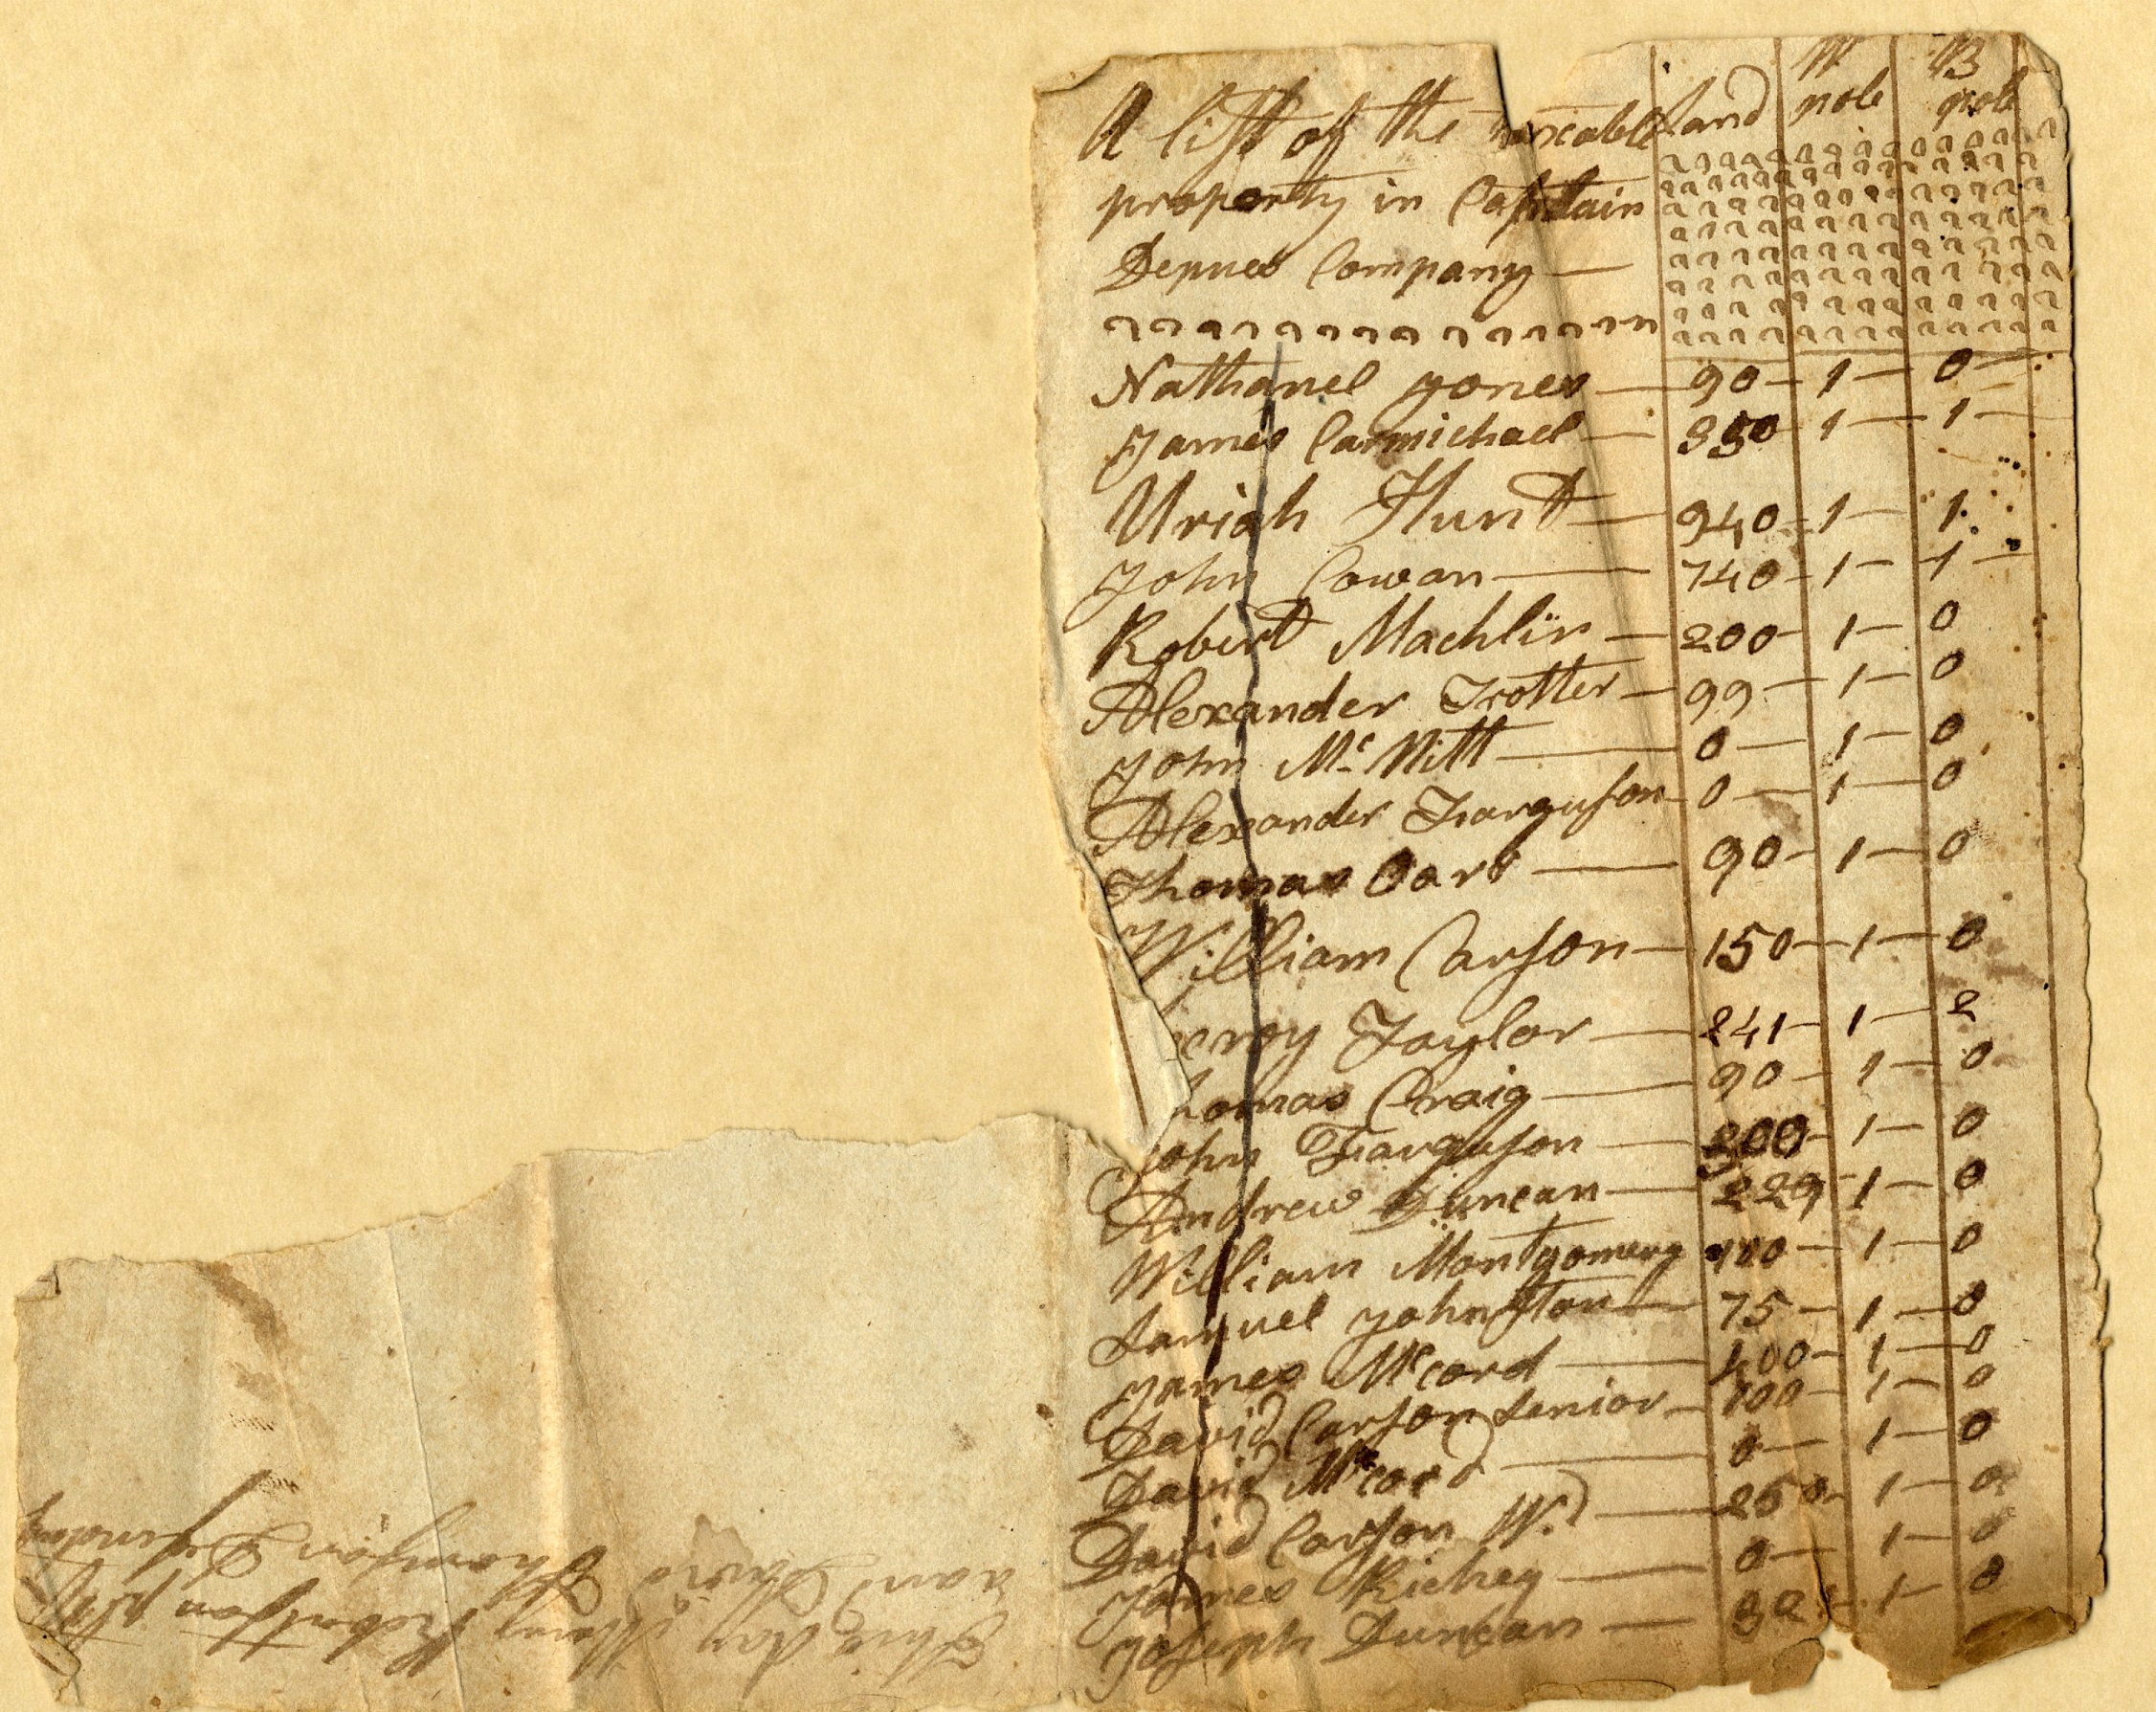 W B
A list of the taxcable Land pole pole
property in Captain
Depues Company —
Nathanel Jones — 90 — 1 — 0
James Carmichael — 350 1 — 1 —
Uriah Hunt — 940 — 1 — 1
John Cowan — 740 — 1 — 1 —
Robert Machlin — 200 — 1 — 0
Alexander Trotter — 99 — 1 — 0
John Mc Nitt — 0 — 1 — 0
Alexander Farguson — 0 — 1 — 0
Thomas — 90 — 1 — 0
William Carson — 150 — 1 — 0
Taylor — 241 — 1 — 2
homas Craig — 90 — 1 — 0
John Farguson — 300 — 1 — 0
Andrew Duncan — 229 1 — 0
William Montgomery — 1 — 0
Samuel Johnston — 75 — 1 — 0
James Mccord — 400 — 1 — 0
David Carson Senior — 100 — 1 — 0
David Mccord — 0 — 1 — 0
David Carson W. — 250 — 1 — 0
James Richey — 0 — 1 — 0
Joseph Duncan — 1 — 0
This day Mary Robertson
and David Thomson